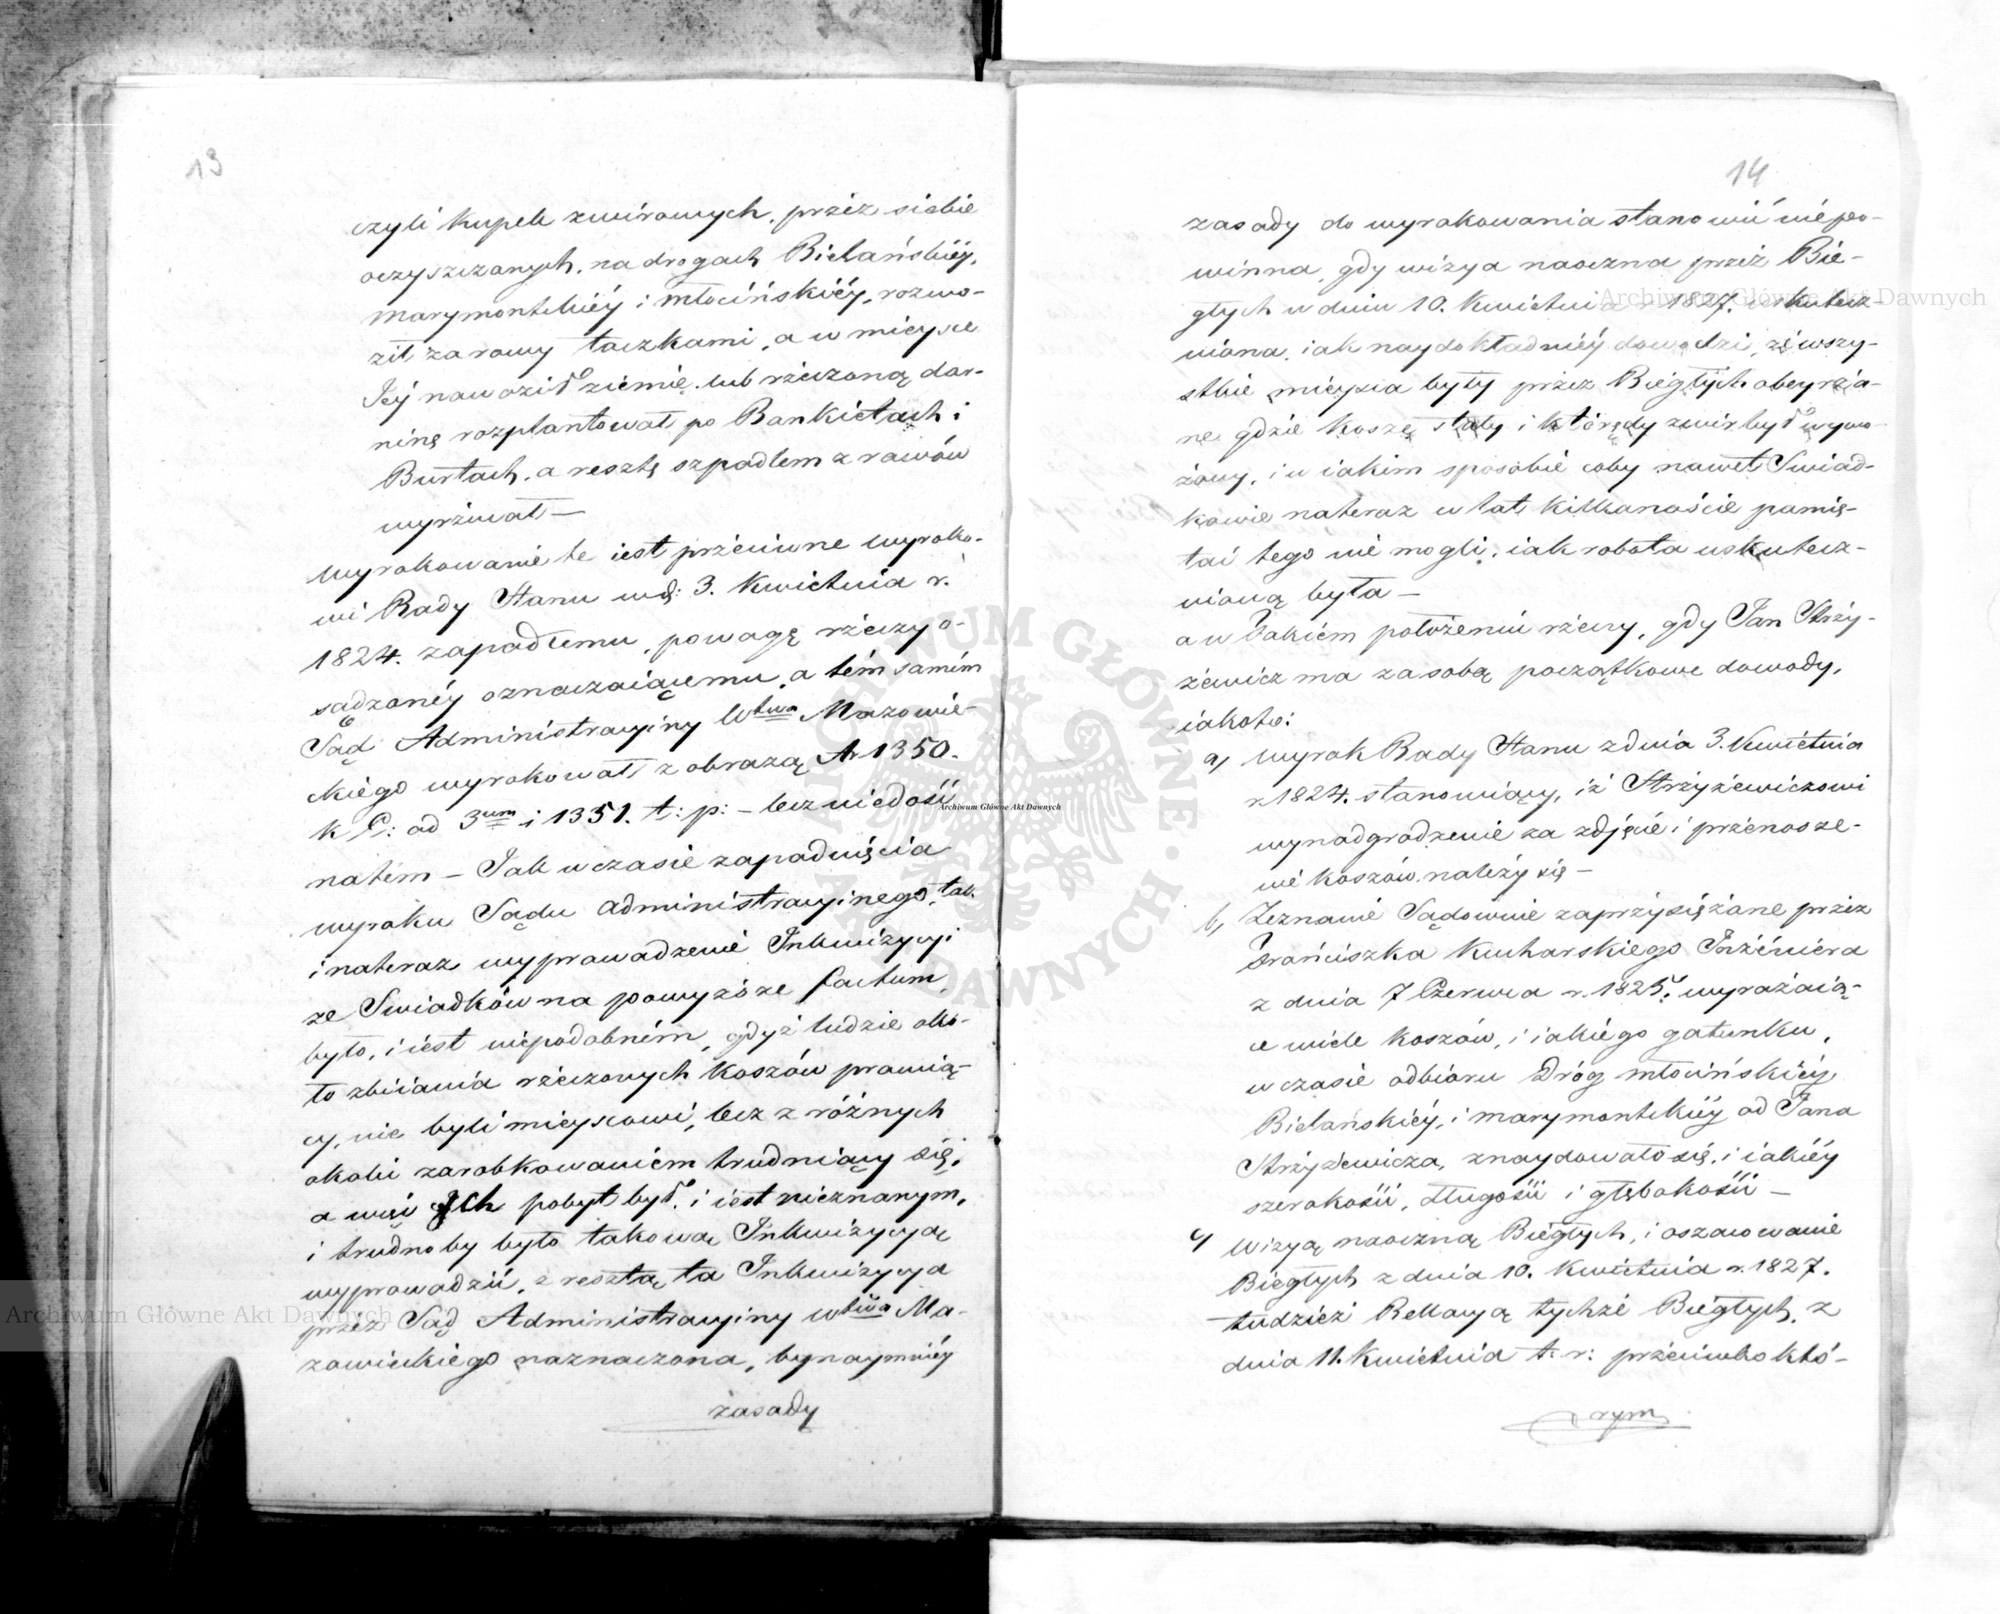 13
czyli kupek zwirowych, przez siebie
oczyszczonych, na drogach Bielańskiéy,
marymontskiéy i młocińskiéy, rozwo-
ził za rowy taczkami, a w mieysce
Jéy nawoził ziemię lub rzeczoną dar-
ninę rozplantował po Bankietach i
Burtach, a resztę szpadlem z rowów
wyrzucał —
wyrokowanie te iest przeciwne wyroko-
wi Rady Stanu wd: 3. Kwietnia r.
1824. zapadłemu, powagę rzeczy o-
sądzonéy oznaczaiącemu, a tém samém
Sąd Administracyiny Wtwa Mazowie-
ckiego wyrokował z obrazą Ar 1350.
k C: ad 3um i 1351. t: p: — lecz niedość
natém — Jak w czasie zapadnięcia
wyroku Sądu Administracyinego, tak
i nateraz wyprowadzenie Inkwizycyi
ze Swiadków na powyższe factum,
było, i iest niepodobném, gdyż ludzie oko-
ło zbiiania rzeczonych koszów pracuią-
cy, nie byli mieyscowi, lecz z różnych
okolic zarobkowaniem trudniący się,
a więc Ich pobyt był, i iest nieznanym,
i trudno by było takową Inkwizycyą
wyprowadzić, z resztą ta Inkwizycya
przez Sąd Administracyiny Wtwa Ma-
zowieckiego naznaczona, bynaymniéy
zasady
14
zasady do wyrokowania stanowić niepo-
winna, gdy wizya naoczna przez Bie-
głych w dniu 10. Kwietnia r 1827. uskutecz-
niona, iak naydokładniéy dowodzi, że wszy-
stkie mieysca były przez Biegłych obeyrza-
ne gdzie kosze stały i którędy zwir był wywo-
żony, i w iakim sposobie coby nawet Swiad-
kowie nateraz w lat kilkanaście pamię-
tać tego nie mogli, iak robota uskutecz-
nioną była —
a w takiém położeniu rzeczy, gdy Jan Strzy-
żewicz ma za sobą początkowe dowody,
iakoto:
a, wyrok Rady Stanu z dnia 3. Kwietnia
r 1824. stanowiący, iż Strzyżewiczowi
wynadgrodzenie za zdjęcie i przenosze-
nie koszów należy się —
b, Zeznanie Sądownie zaprzysiężone przez
Franciszka Kucharskiego Inżéniera
z dnia 7 Czerwca r. 1825. wyrażaią-
ce wiele koszów, i iakiego gatunku,
w czasie odbioru Dróg młocińskiéy
Bielańskiéy, i marymontskiéy od Jana
Strzyżewicza, znaydowało się, i iakiéy
szerokości, długości i głębokości —
c, wizyą naoczną Biegłych, i oszacowanie
Biegłych z dnia 10. Kwietnia r. 1827.
tudzież Rellacyą tychże Biegłych, z
dnia 11. Kwietnia t. r: przeciwko któ-
rym
Archiwum Główne Akt Dawnych
Archiwum Główne Akt Dawnych
Archiwum Główne Akt Dawnych
ARCHIWUM GŁÓWNE AKT DAWNYCH